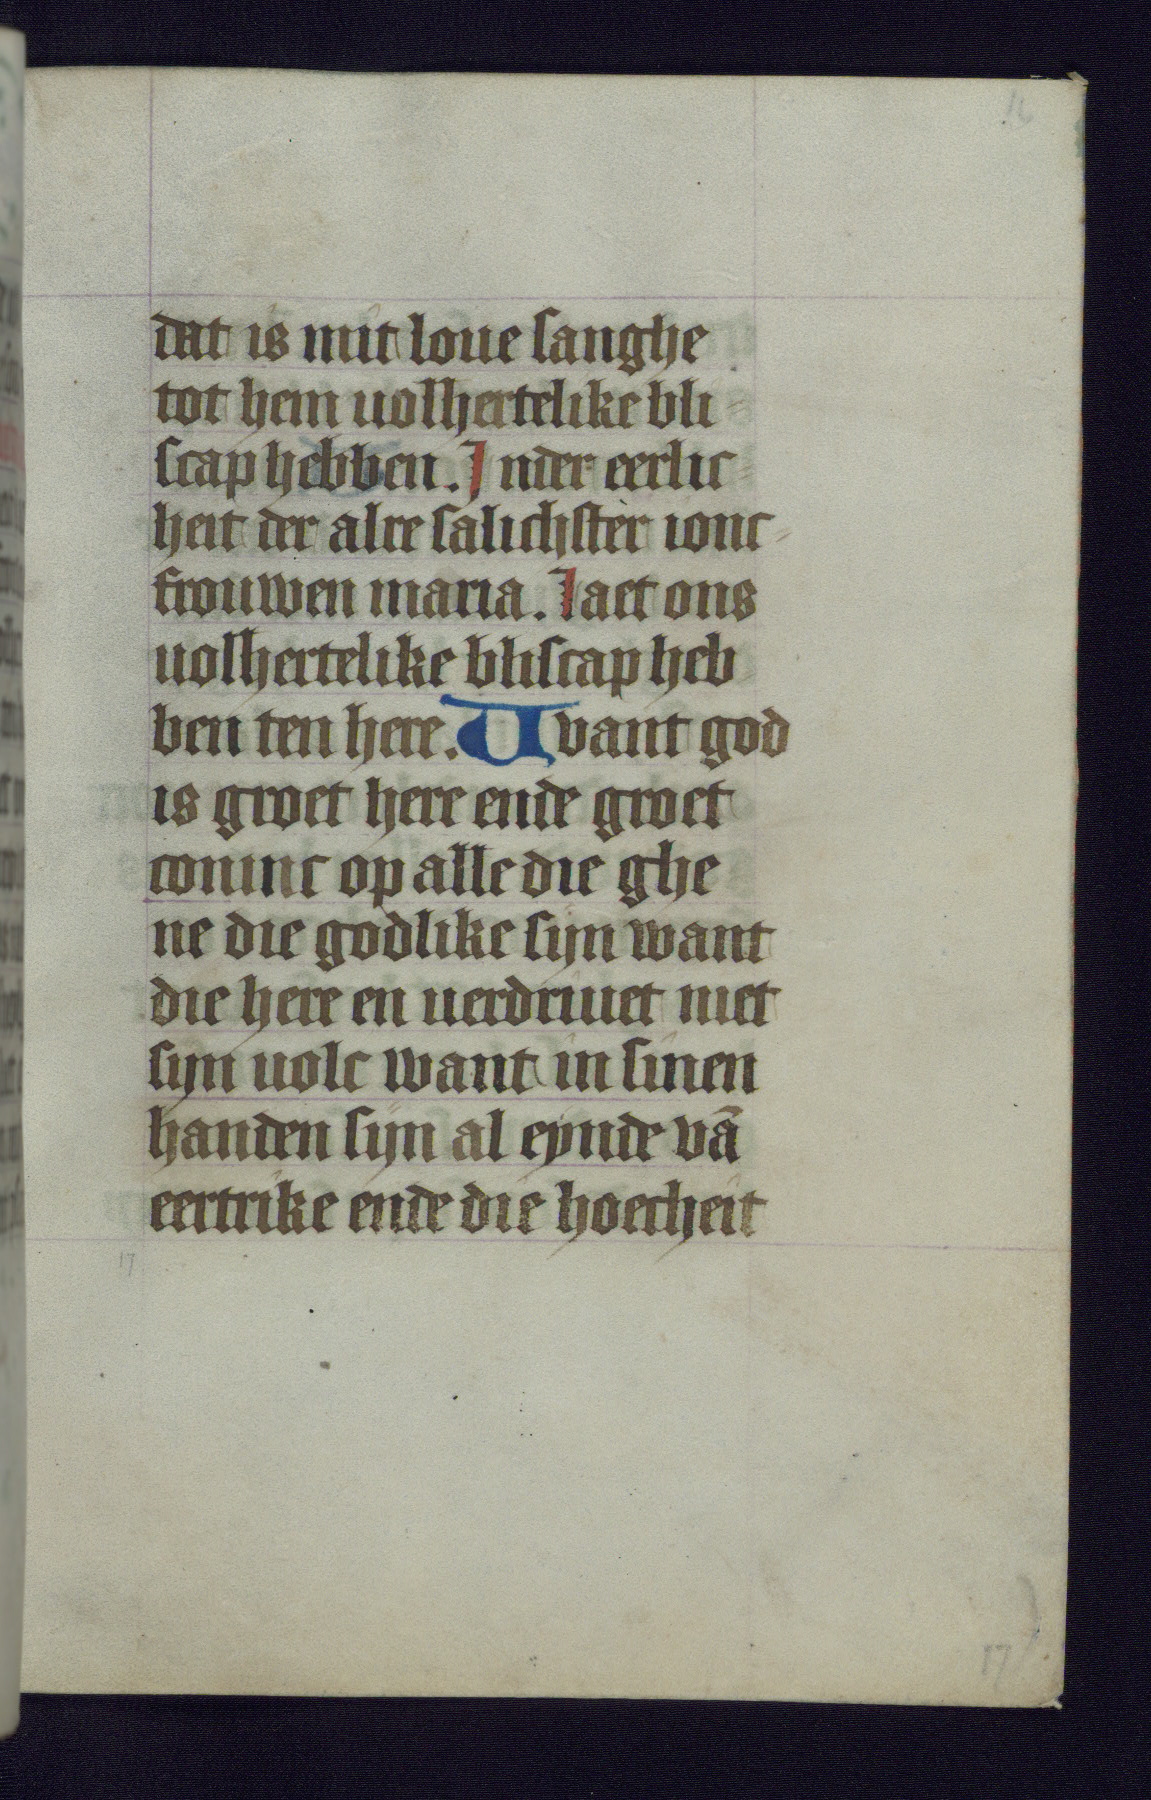 16
dat is mit loue sanghe
tot hem uolhertelike bli
scap hebben. Inder eerlic
heit der alre salichster ionc
frouwen maria. Iaet ons
uolhertelike bliscap heb
ben ten here. Uvant god
is groet here ende groet
coninc op alle die ghe
ne die godlike sijn want
die here en uerdriuet niet
sijn uolc want in sinen
handen sijn al eynde vā
eertrike ende die hoecheit
17
17